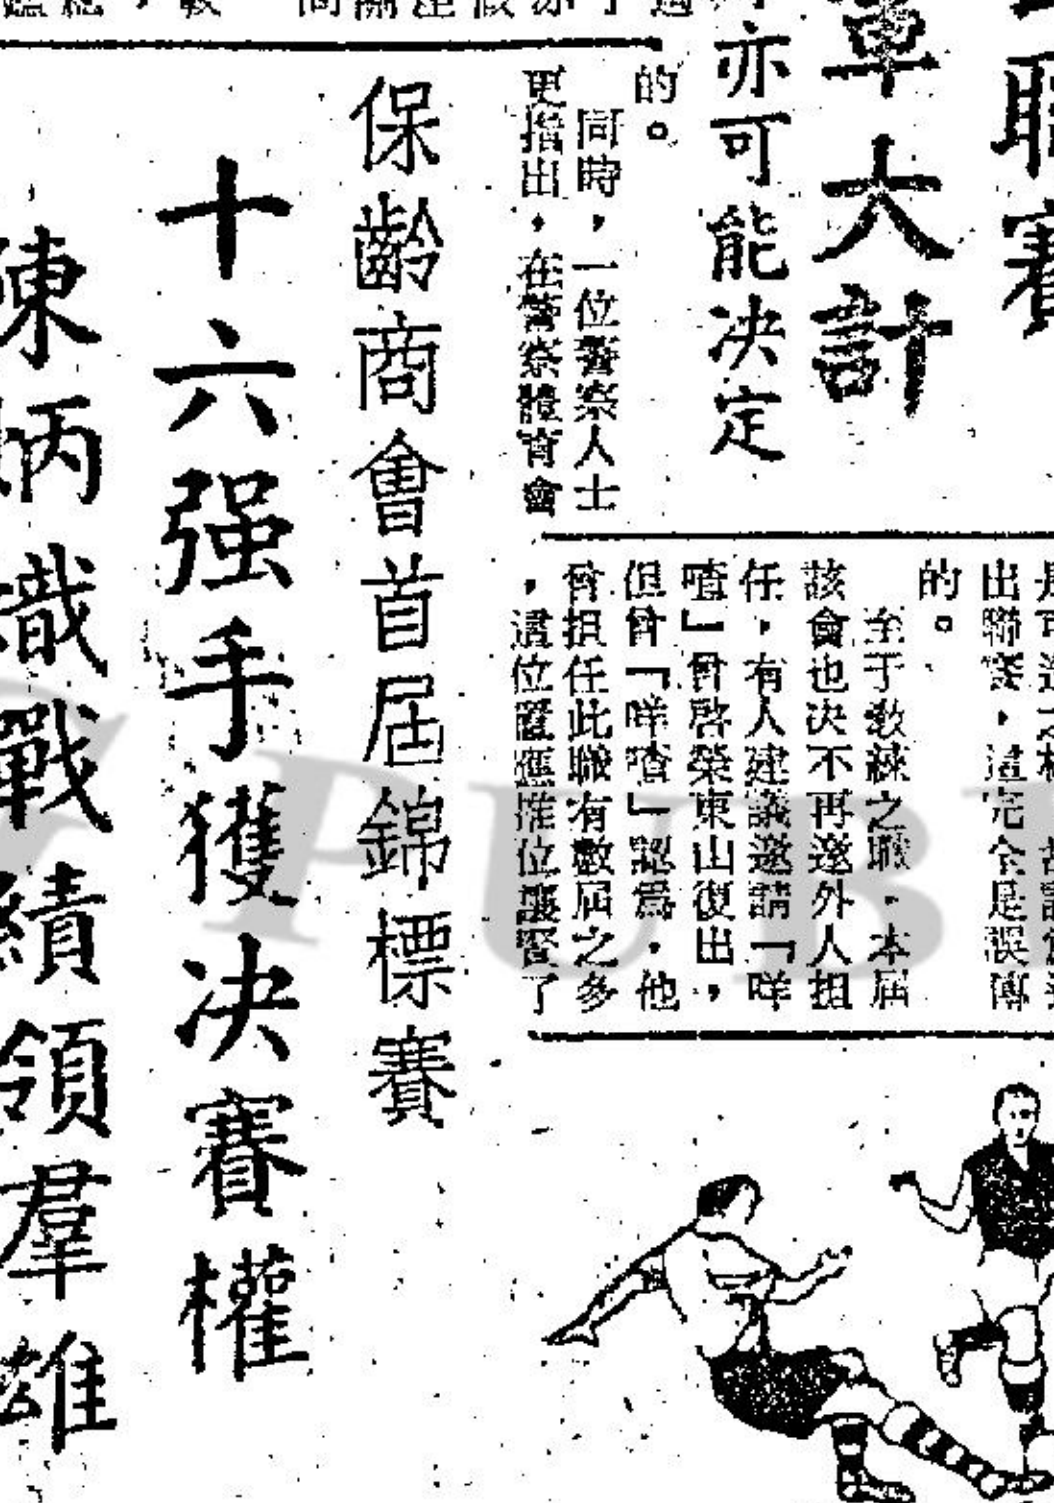 聯賽
軍大計
亦可能決定
的。
同時，一位警察人士
更指出，在警察體育會
出聯賽，這完全是誤傳
的。
至于教練之職，本屆
該會也决不再邀外人担
任，有人建議邀請「咩
喳」曾啓榮東山復出，
但曾「咩喳」認爲，他
曾担任此職有數屆之多
，這位置應推位讓賢了
保齡商會首屆錦標賽
十六强手獲决賽權
陳炳熾戰績領羣雄
PUB